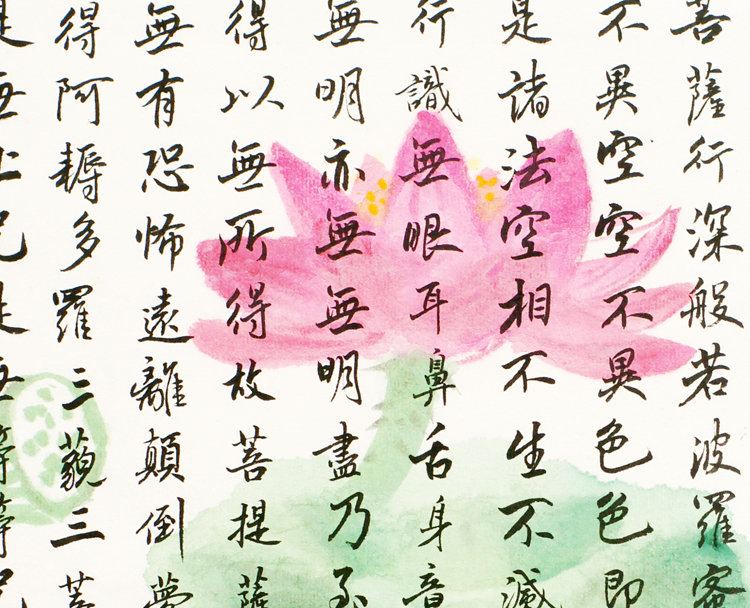 菩薩行深般若波羅蜜
不異空空不異色色即
是諸法空相不生不滅
行識無眼耳鼻舌身意
無明亦無無明盡乃至
得以無所得故菩提薩
無有恐怖遠離顛倒夢
得阿耨多羅三藐三菩
是無上咒是無等等咒